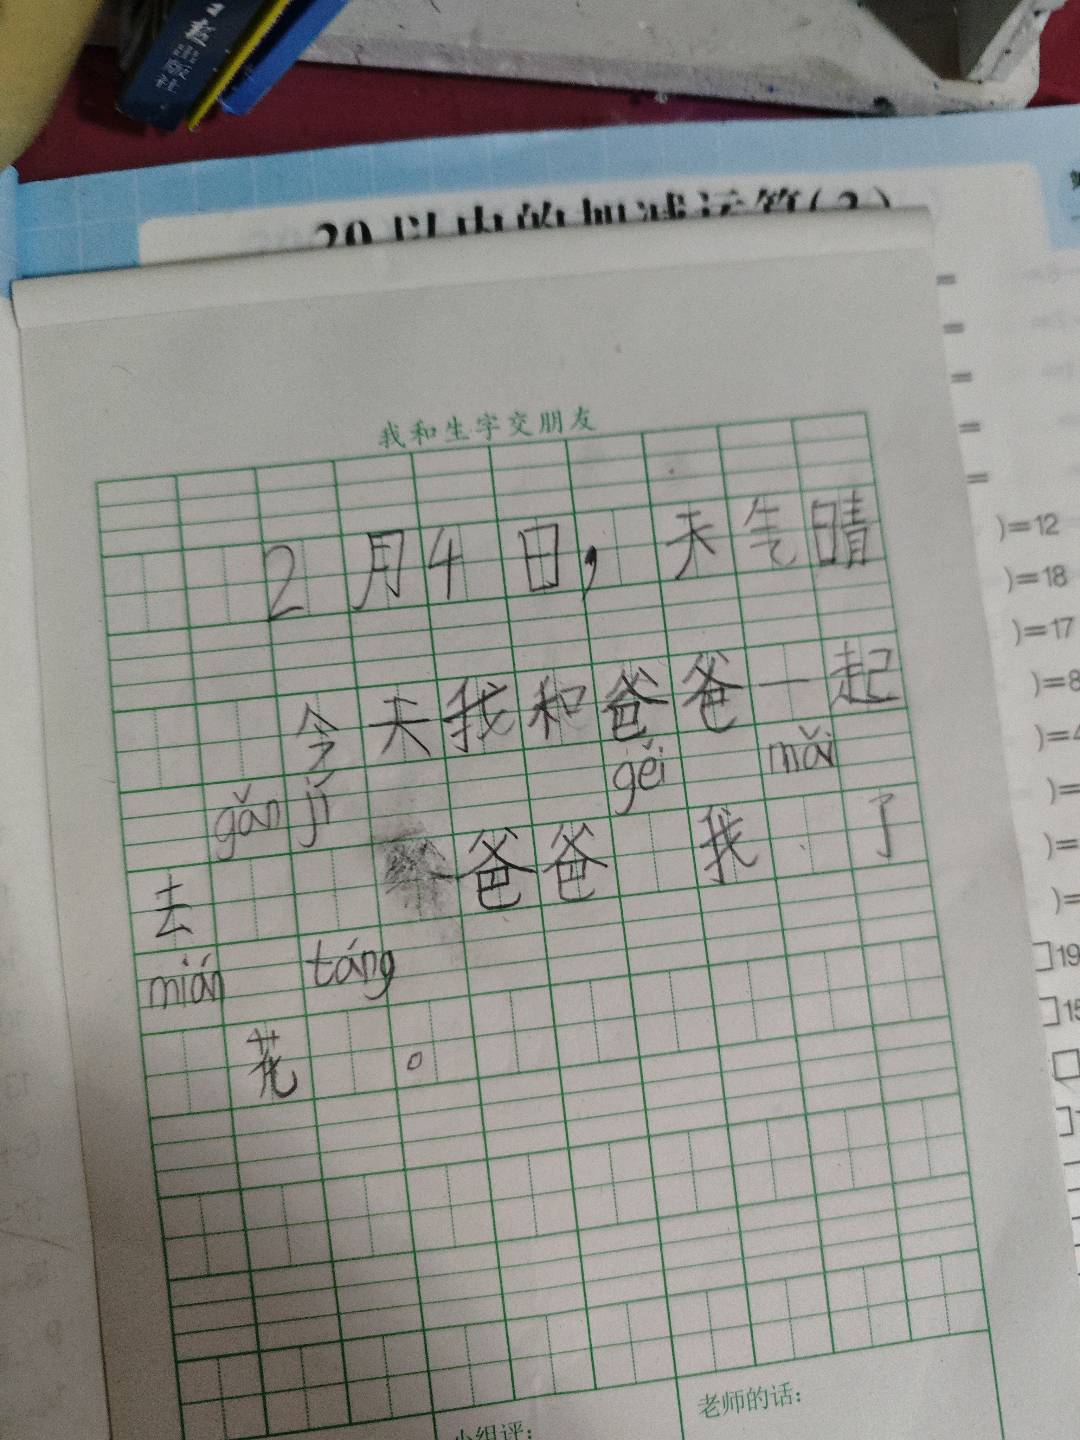 日报出版社
20以内的加减运算(2)
我和生字交朋友
2月4日，天气晴
今天我和爸爸一起
gǎn jǐ gěi mǎi
去 爸爸 我 了
mián táng
花 。
小组评：
老师的话：
=
=
=
=
=
)=12
)=18
)=17
)=8
)=4
)=
)=
)=
19
15